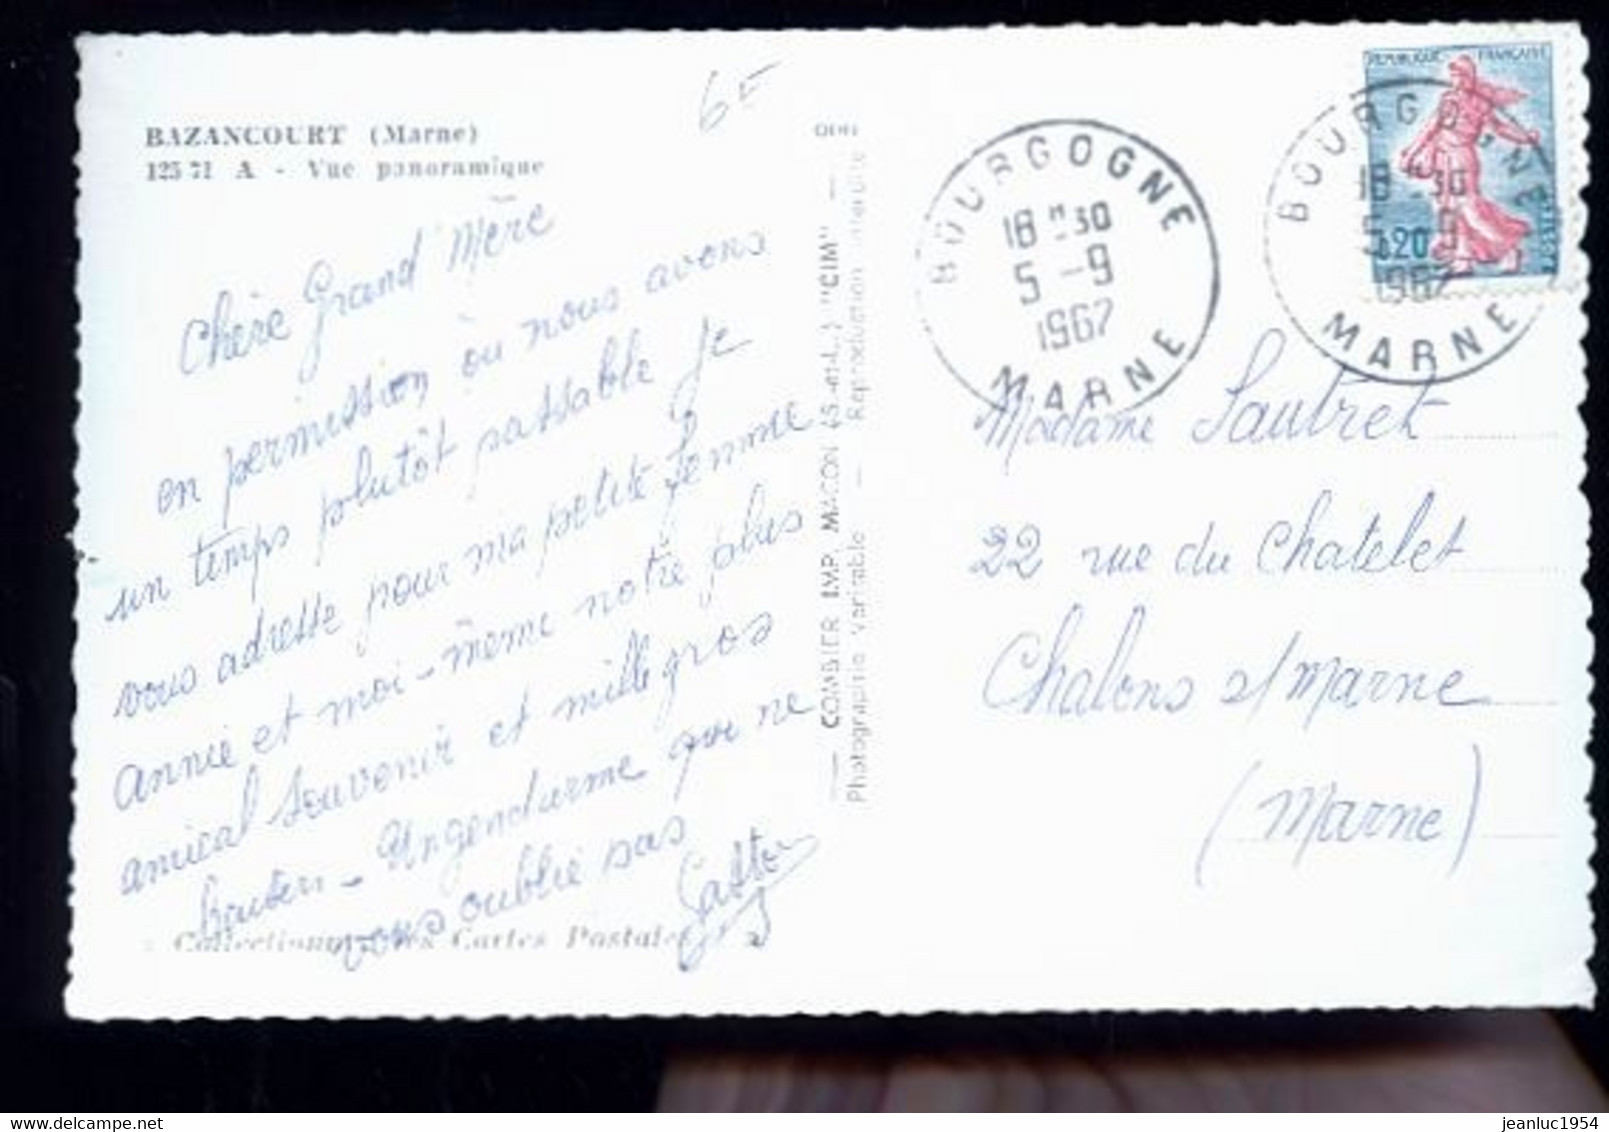 6F
BAZANCOURT (Marne)
125 71 A - Vue panoramique
Chère Grand' Mère
en permission, où nous avons
un temps plutôt passable je
vous adresse pour ma petite femme
annie et moi-même notre plus
amical souvenir et mille gros
Un gendarme qui ne
vous oublie pas
Gaston
Collectionnez les Cartes Postales
COMBIER IMP. MACON (S.-et-L.) "CIM"
Photographie Véritable — Reproduction interdite
BOURGOGNE
18 H 30
5 - 9
1967
MARNE
REPUBLIQUE FRANÇAISE
0,20
POSTES
BOURGOGNE
18 H 30
5 - 9
1967
MARNE
Madame Sautret
22 rue du Chatelet
Chalons s/ Marne
(Marne)
jeanluc1954